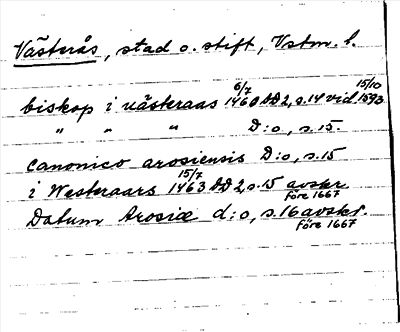 Västerås, stad o. stift, Vstm. l.
biskop i västeraas 6/7 1460 DD2, s.14 vid 15/10 1593
" " " D:o, s.15.
canonico arosiensis D:o, s.15
i Westeraars 15/7 1463 DD2, s.15 avskr. före 1667
Datum Arosiæ d:o, s.16 avskr. före 1667